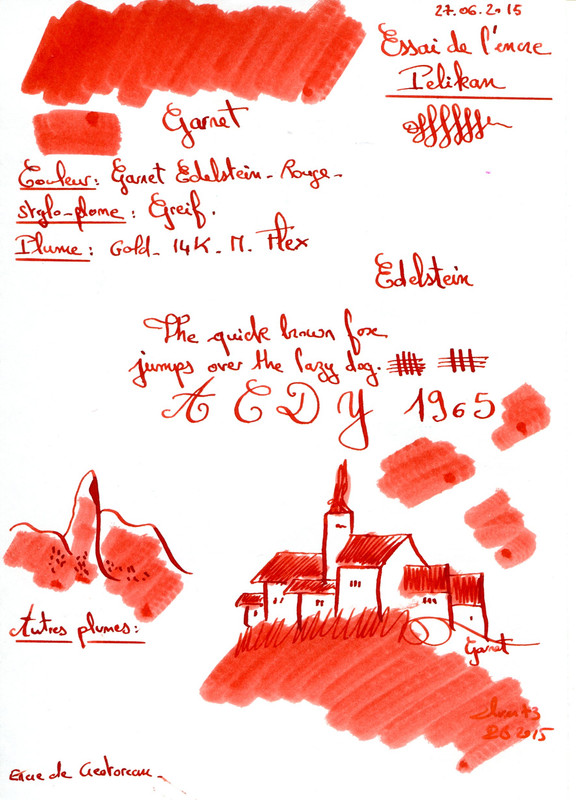 27.06.2015
Essai de l'encre
Pelikan
Garnet
Couleur : Garnet Edelstein - Rouge -
stylo-plume : Greif.
Plume : Gold - 14K - M. Flex
Edelstein
The quick brown fox
jumps over the lazy dog.
A E D Y 1965
Autres plumes :
Garnet
2015
Encre de